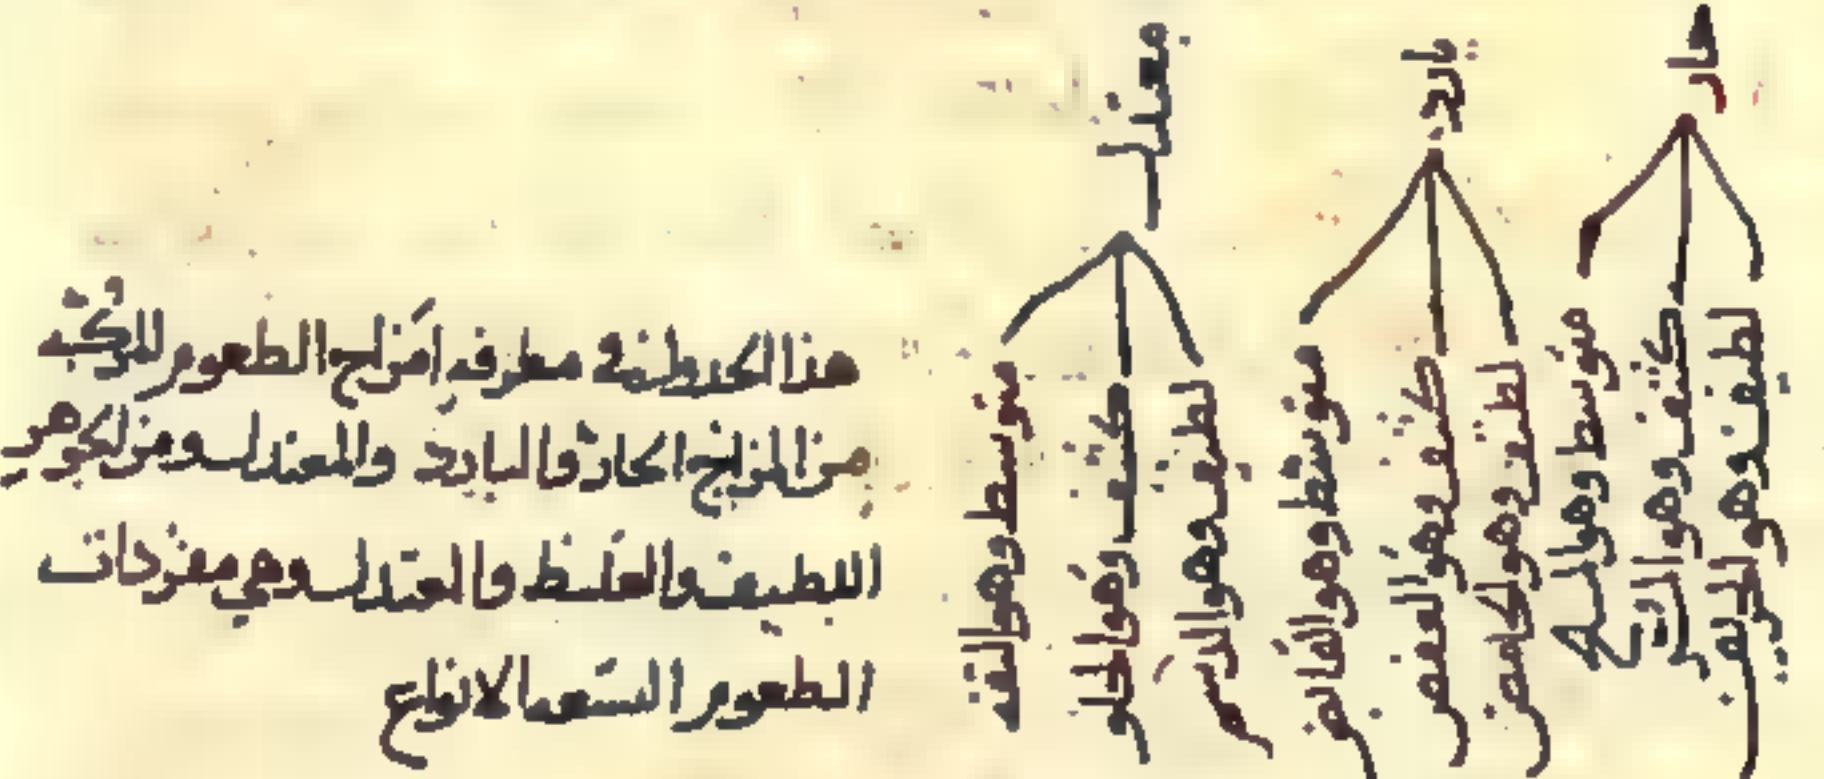 حار
لطيف وهو الحريف
كثيف وهو المر
متوسط وهو المالح
بارد
لطيف وهو الحامض
كثيف وهو العفص
متوسط وهو القابض
معتدل
لطيف وهو الدسم
كثيف وهو الحلو
متوسط وهو التفه
هذا معرفه امزاج الطعوم المركبه
من المزاج الحار والبارد والمعتدل ومن الجوهر
اللطيف والغليظ والمعتدل وهي مفردات
الطعوم التسعه الانواع